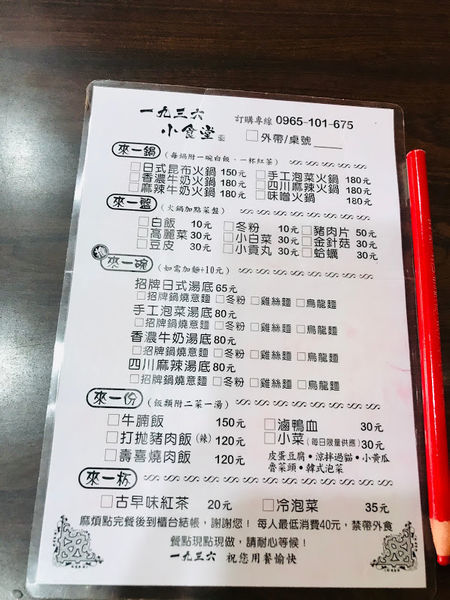 一九三六
小食堂
訂購專線 0965-101-675
□外帶/桌號____
來一鍋 (每鍋附一碗白飯、一杯紅茶)
□日式昆布火鍋 150元 □手工泡菜火鍋 180元
□香濃牛奶火鍋 180元 □四川麻辣火鍋 180元
□麻辣牛奶火鍋 180元 □味噌火鍋 180元
來一盤 (火鍋加點菜盤)
□白飯 10元 □冬粉 10元 □豬肉片 50元
□高麗菜 30元 □小白菜 30元 □金針菇 30元
□豆皮 30元 □小貢丸 30元 □蛤蠣 30元
來一碗 (如需加麵+10元)
招牌日式湯底65元
□招牌鍋燒意麵 □冬粉 □雞絲麵 □烏龍麵
手工泡菜湯底80元
□招牌鍋燒意麵 □冬粉 □雞絲麵 □烏龍麵
香濃牛奶湯底80元
□招牌鍋燒意麵 □冬粉 □雞絲麵 □烏龍麵
四川麻辣湯底80元
□招牌鍋燒意麵 □冬粉 □雞絲麵 □烏龍麵
來一份 (飯類附二菜一湯)
□牛腩飯 150元 □滷鴨血 30元
□打拋豬肉飯(辣) 120元 □小菜(每日限量供應) 30元
□壽喜燒肉飯 120元 皮蛋豆腐・涼拌過貓・小黃瓜
魯菜頭・韓式泡菜
來一杯
□古早味紅茶 20元 □冷泡茶 35元
麻煩點完餐後到櫃台結帳，謝謝您！ 每人最低消費40元，禁帶外食
餐點現點現做，請耐心等候！
一九三六 祝您用餐愉快